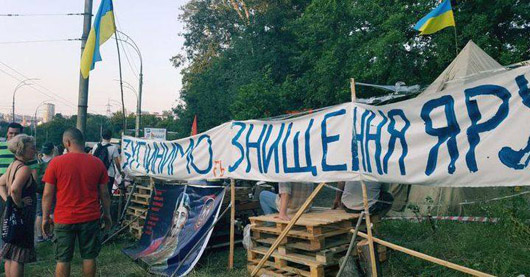 ЗУПИНИМО ЗНИЩЕННЯ ЯРУ